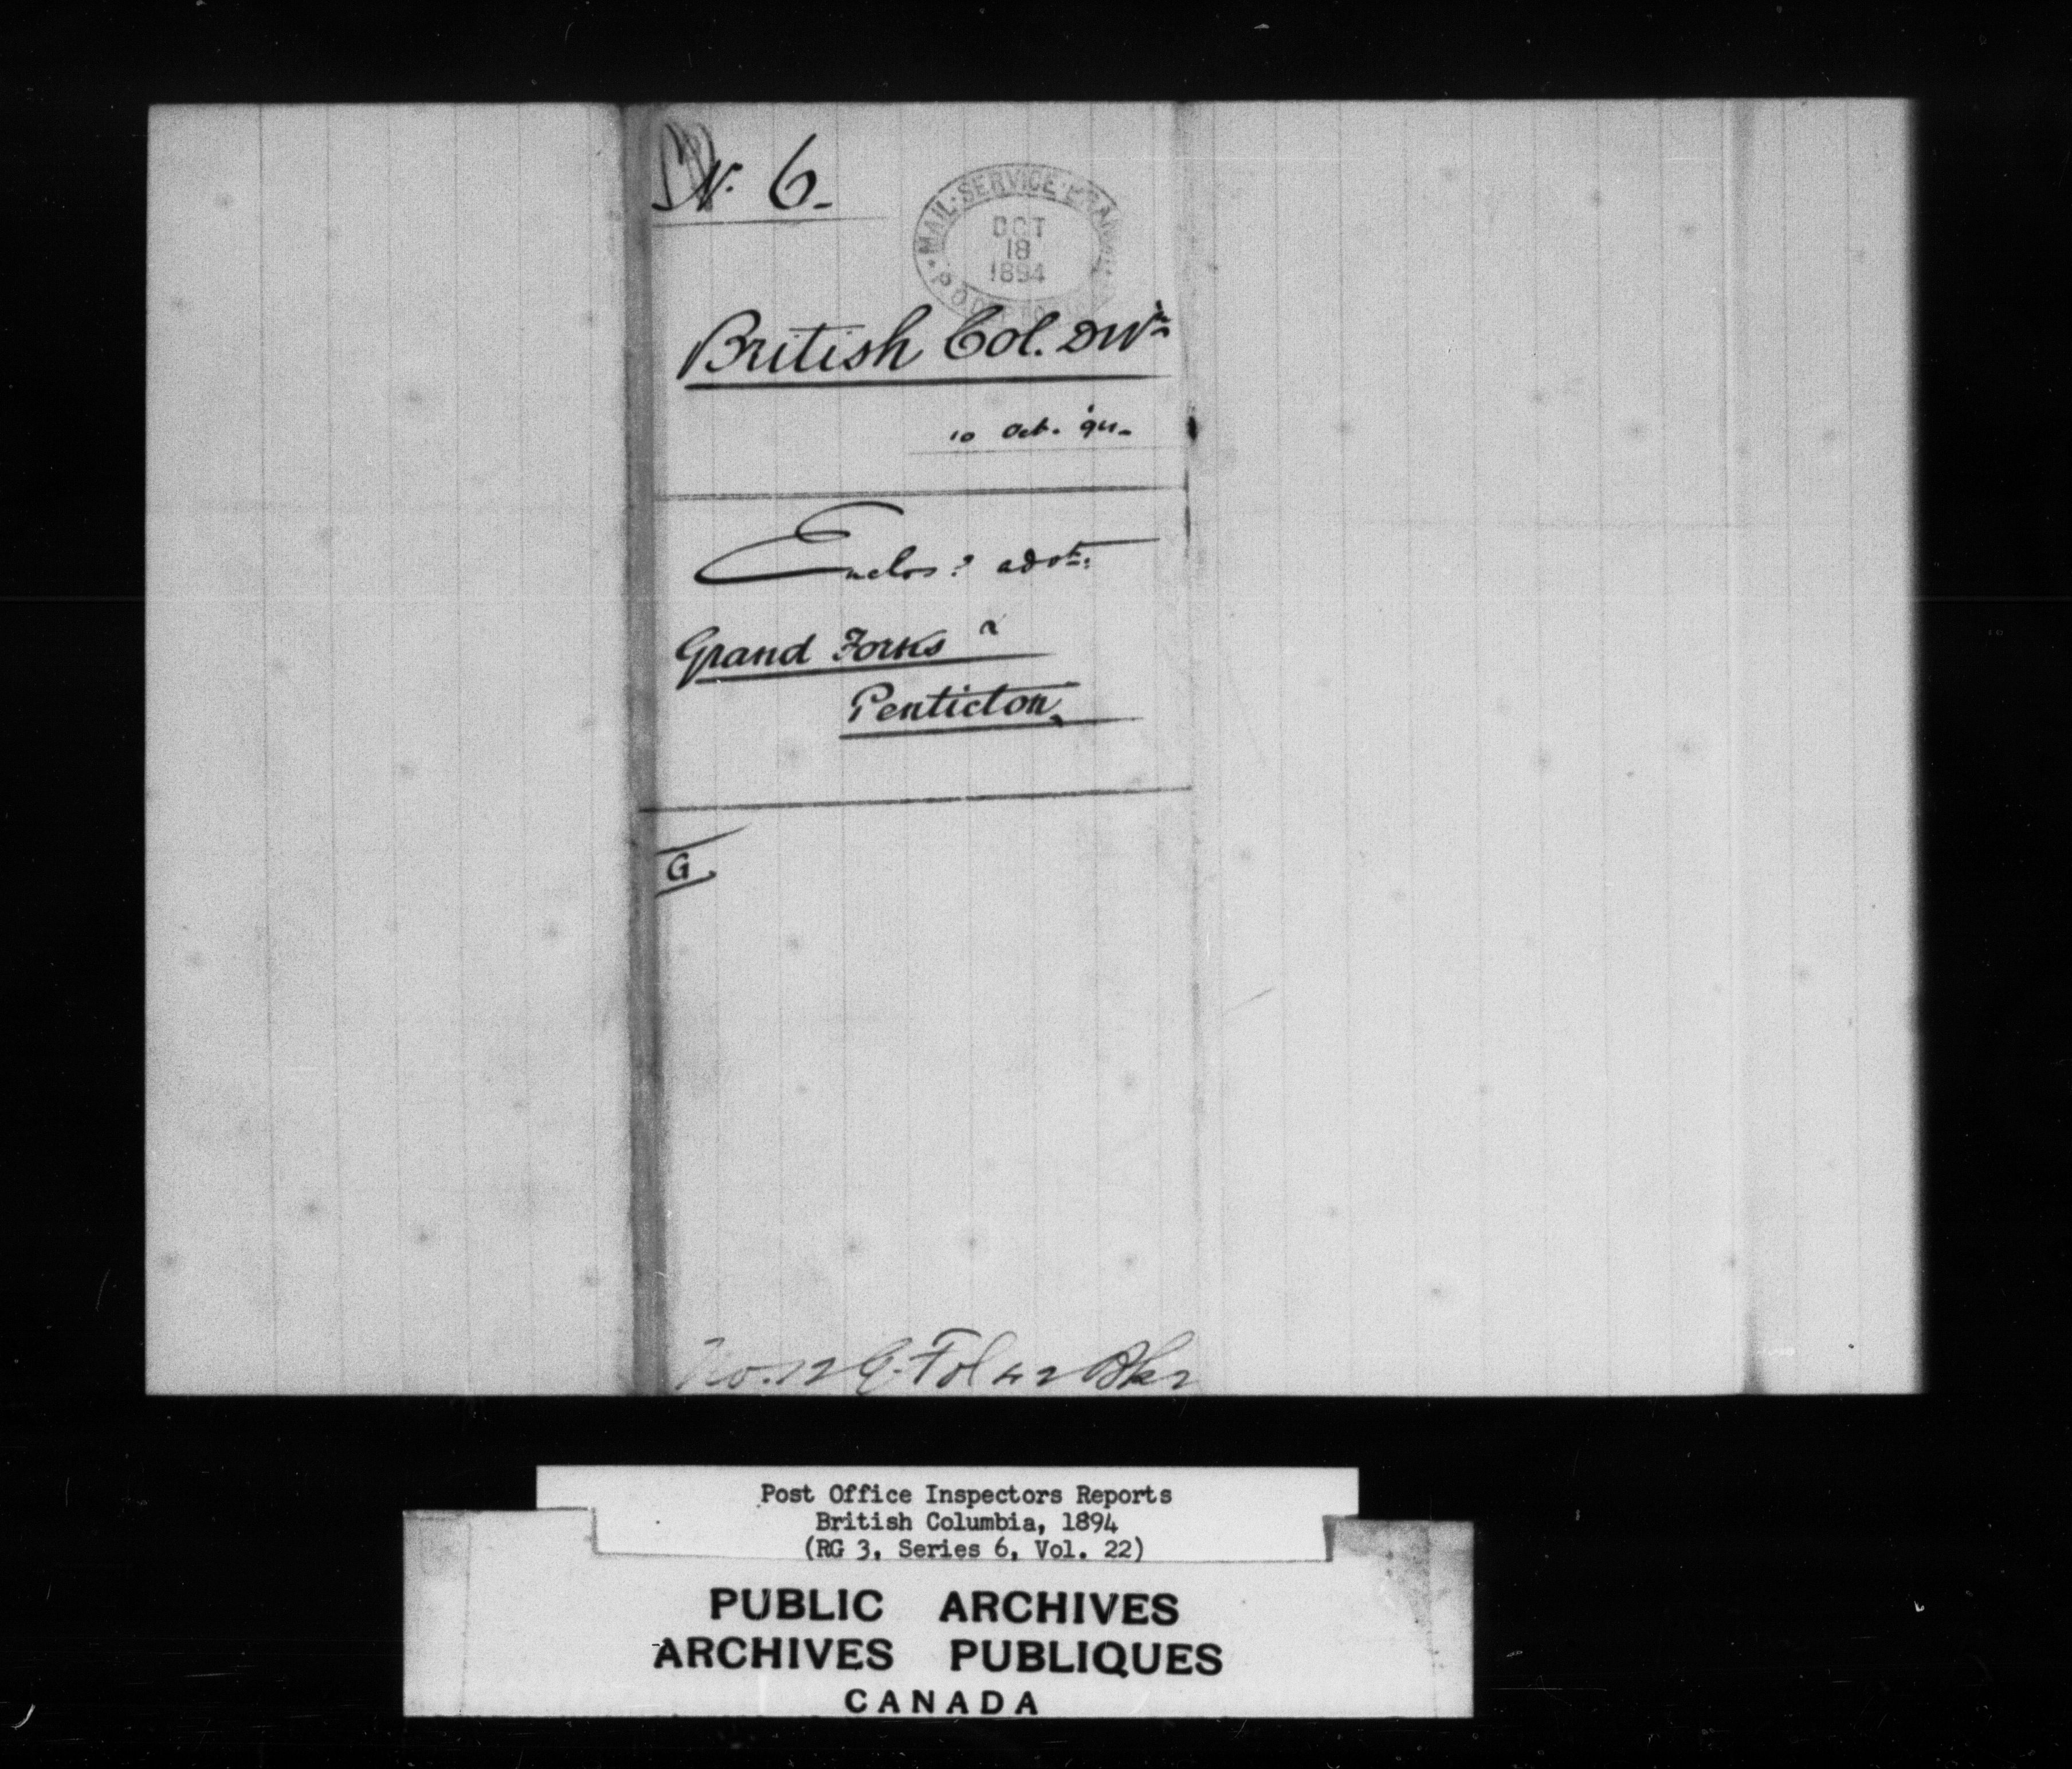 N. 6.
MAIL SERVICE BRANCH
OCT
18
1894
British Col. Divn
10 Oct. '94.
Enclos: advt:
Grand Forks &
Penticton
G.
No. 12 G. Fol 42 Bk 2
Post Office Inspectors Reports
British Columbia, 1894
(RG 3, Series 6, Vol. 22)
PUBLIC ARCHIVES
ARCHIVES PUBLIQUES
CANADA